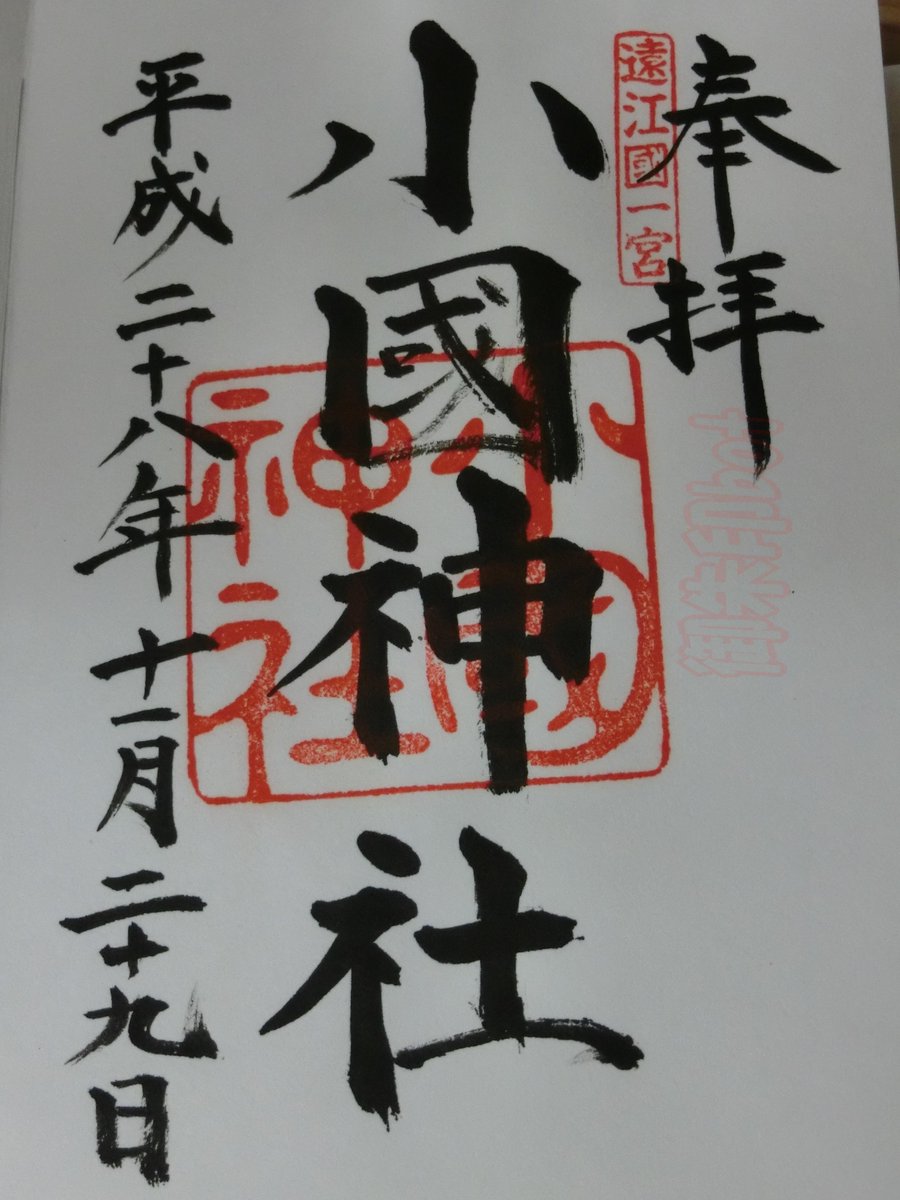 奉拝
遠江國一宮
小國神社
小國神社
平成二十八年十一月二十九日